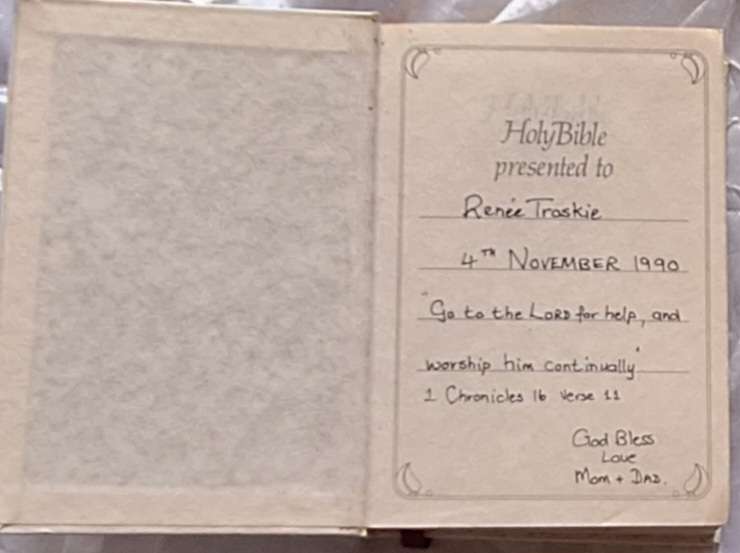 Holy Bible
presented to
Renée Traskie
4TH NOVEMBER 1990
"Go to the LORD for help, and
worship him continually"
1 Chronicles 16 verse 11
God Bless
Love
Mom + DAD.